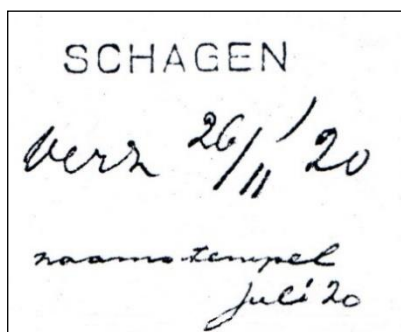 SCHAGEN
verz 26/11 '20
naamstempel
juli 20